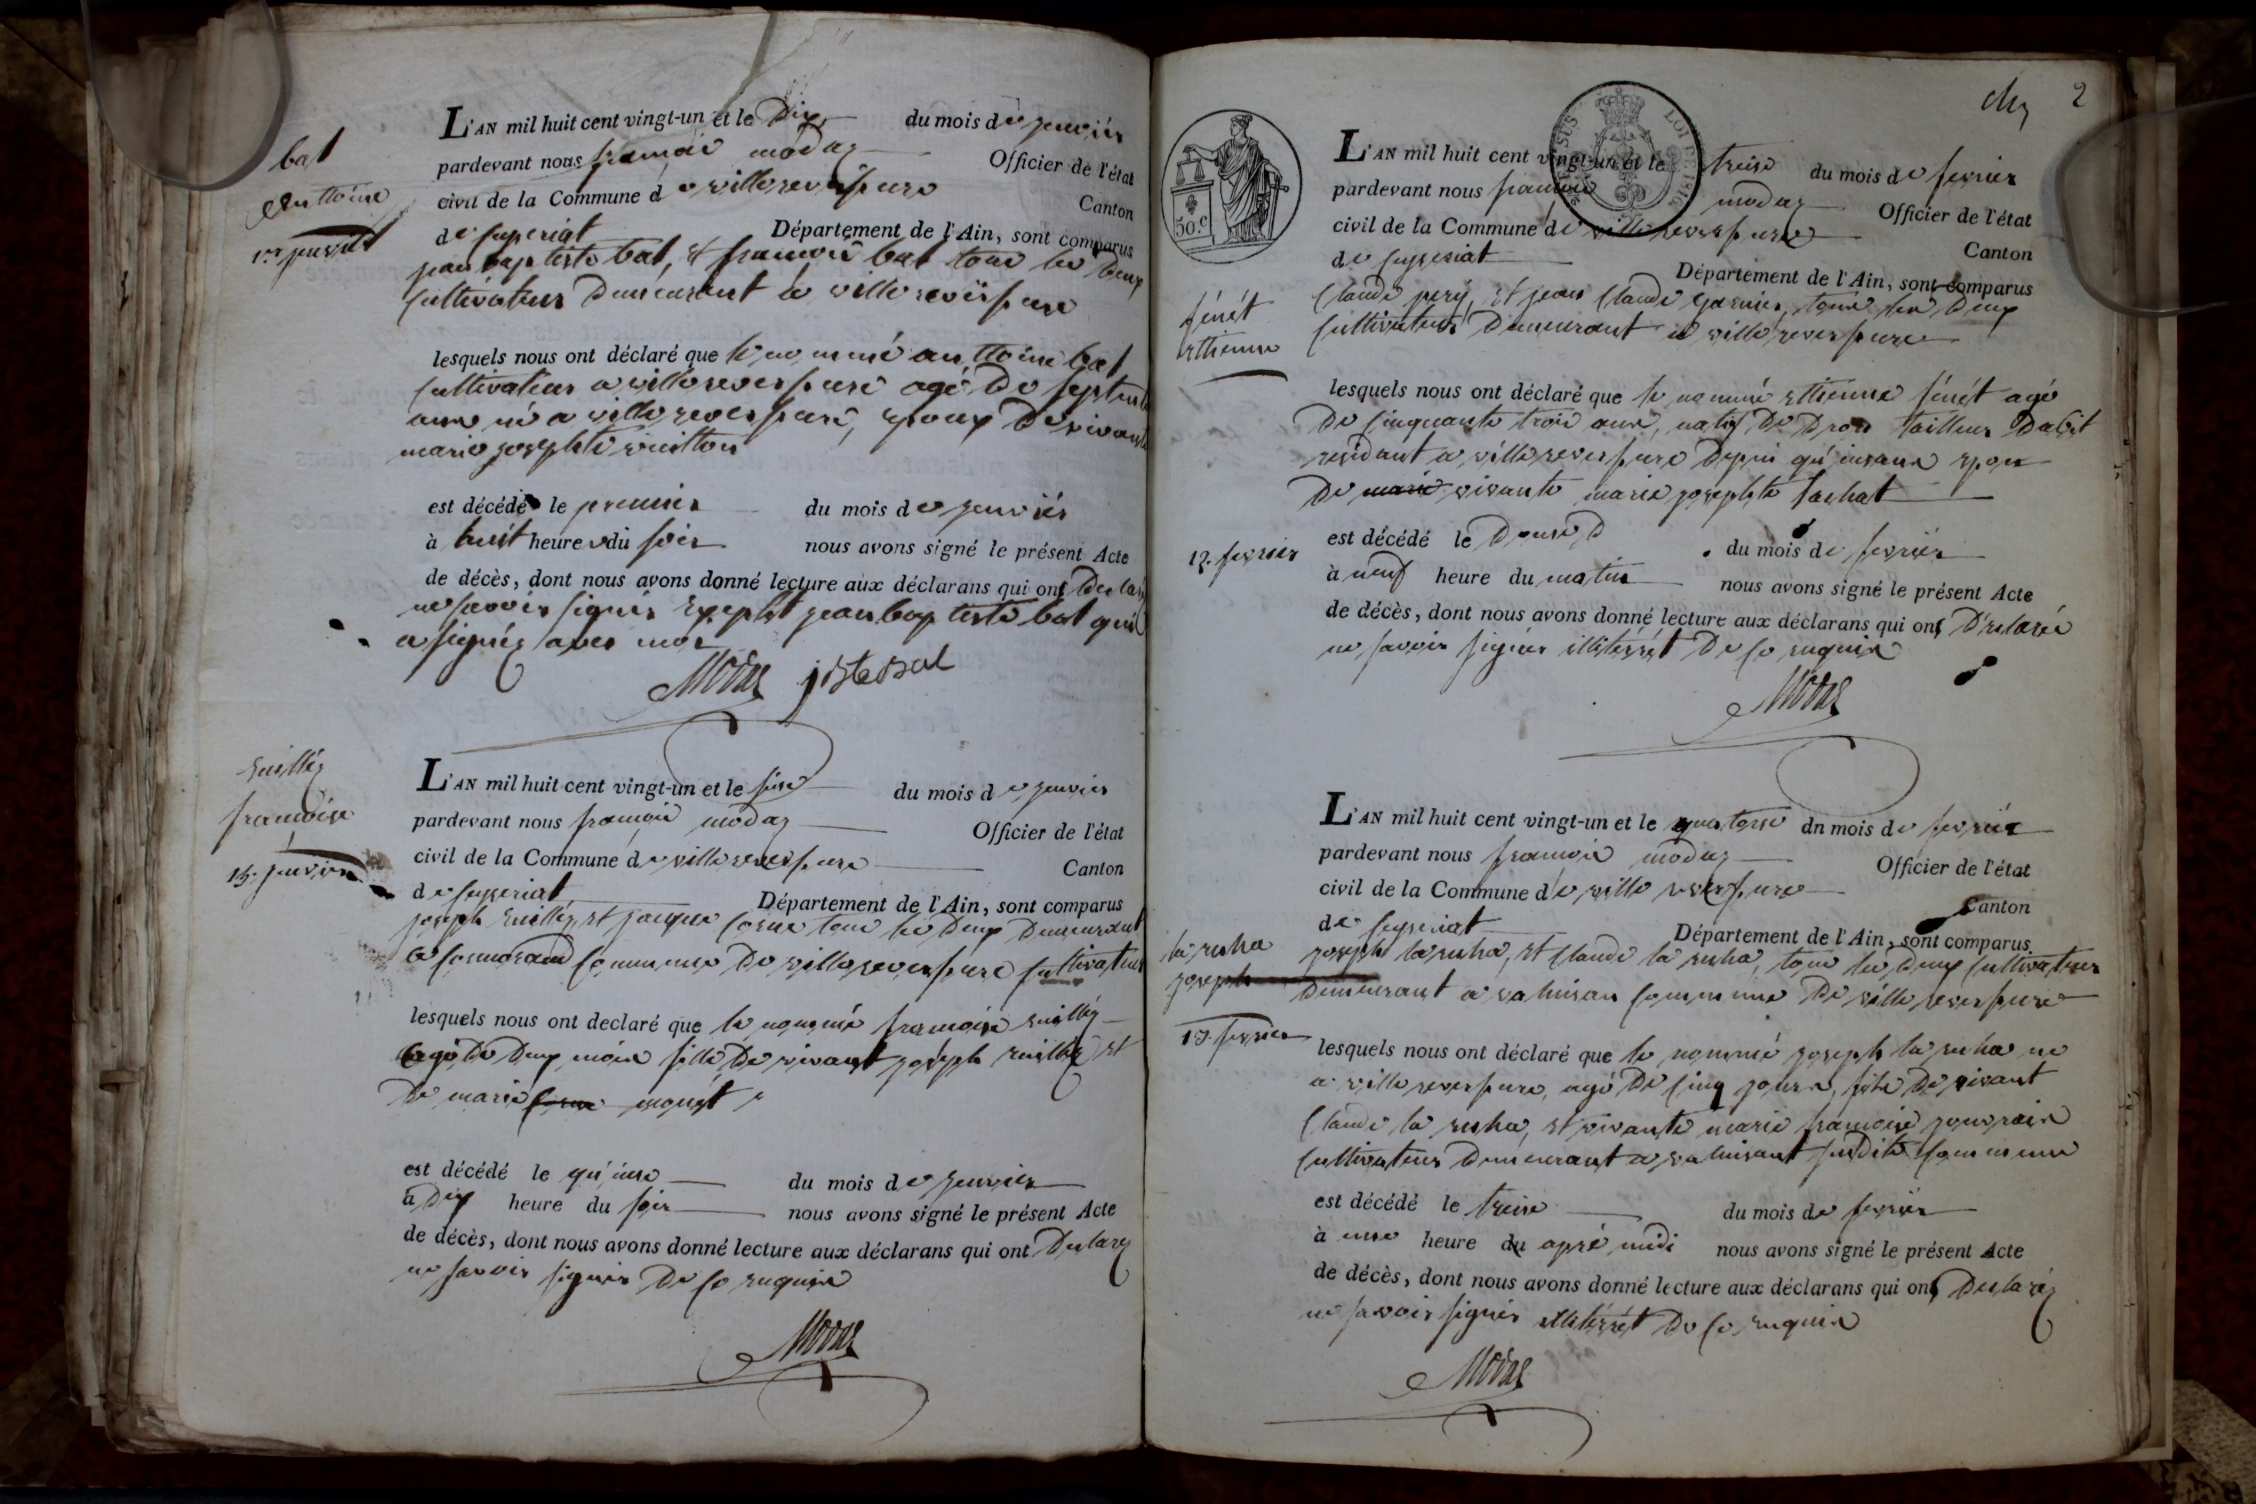 bat
anttoine
1er janvier
L'AN mil huit cent vingt-un et le dix du mois de janvier
pardevant nous francois modaz Officier de l'état
civil de la Commune de villereversure Canton
de ceyzeriat Département de l'Ain, sont comparus
jean baptiste bat, et francois bat tous les deux
cultivateurs demeurant a villereversure
lesquels nous ont déclaré que le nommé anttoine bat
cultivateur a villereversure agé de septente
ans né a villereversure, epoux de vivante
marie josephte
est décédé le premier du mois de janvier
à huit heure du soir nous avons signé le présent Acte
de décès, dont nous avons donné lecture aux déclarans qui ont declaré
ne savoir signer excepté jean baptiste bat qui
a signéz avec moi
Modaz jBte Bat
francoise
15 janvier
L'AN mil huit cent vingt-un et le seise du mois de janvier
pardevant nous francois modaz Officier de l'état
civil de la Commune de villereversure Canton
de ceyzeriat Département de l'Ain, sont comparus
joseph et jacque tous les deux demeurant
a commune de villereversure cultivateurs
lesquels nous ont declaré que le nommé francoise
agé de deux mois fille de vivant joseph et
de marie
est décédé le quinse du mois de janvier
à dix heure du soir nous avons signé le présent Acte
de décès, dont nous avons donné lecture aux déclarans qui ont declarez
ne savoir signer de ce requis
Modaz
2
50.c
LOI DE 1816
fénét
ettienne
12. fevrier
L'AN mil huit cent vingt-un et le treise du mois de fevrier
pardevant nous francois modaz Officier de l'état
civil de la Commune de villereversure Canton
de ceyzeriat Département de l'Ain, sont comparus
Claude pery, et jean Claude garnier, tous les deux
cultivateurs demeurant a villereversure
lesquels nous ont déclaré que le nommé ettienne fénét agé
de cinquante trois ans, natif de drom tailleur dabit
residant a villereversure depui quinsans epou
de marie vivante marie josephte
est décédé le douse du mois de fevrier
à neuf heure du matin nous avons signé le présent Acte
de décès, dont nous avons donné lecture aux déclarans qui ont declaré
ne savoir signer illitérét de ce requis
Modaz
la rucha
joseph
13. fevrier
L'AN mil huit cent vingt-un et le quatorse dn mois de fevrier
pardevant nous francois modaz Officier de l'état
civil de la Commune de villereversure Canton
de ceyzeriat Département de l'Ain, sont comparus
joseph la rucha, et Claude la rucha, tous les deux cultivateurs
demeurant a commune de villereversure
lesquels nous ont déclaré que le nommé joseph la rucha né
a villereversure, agé de cinq jours, fils de vivant
Claude la rucha, et vivante marie francoise
cultivateurs demeurant a susdite commune
est décédé le treise du mois de fevrier
à une heure du apré midi nous avons signé le présent Acte
de décès, dont nous avons donné lecture aux déclarans qui ont declaréz
ne savoir signer illitérét de ce requis
Modaz